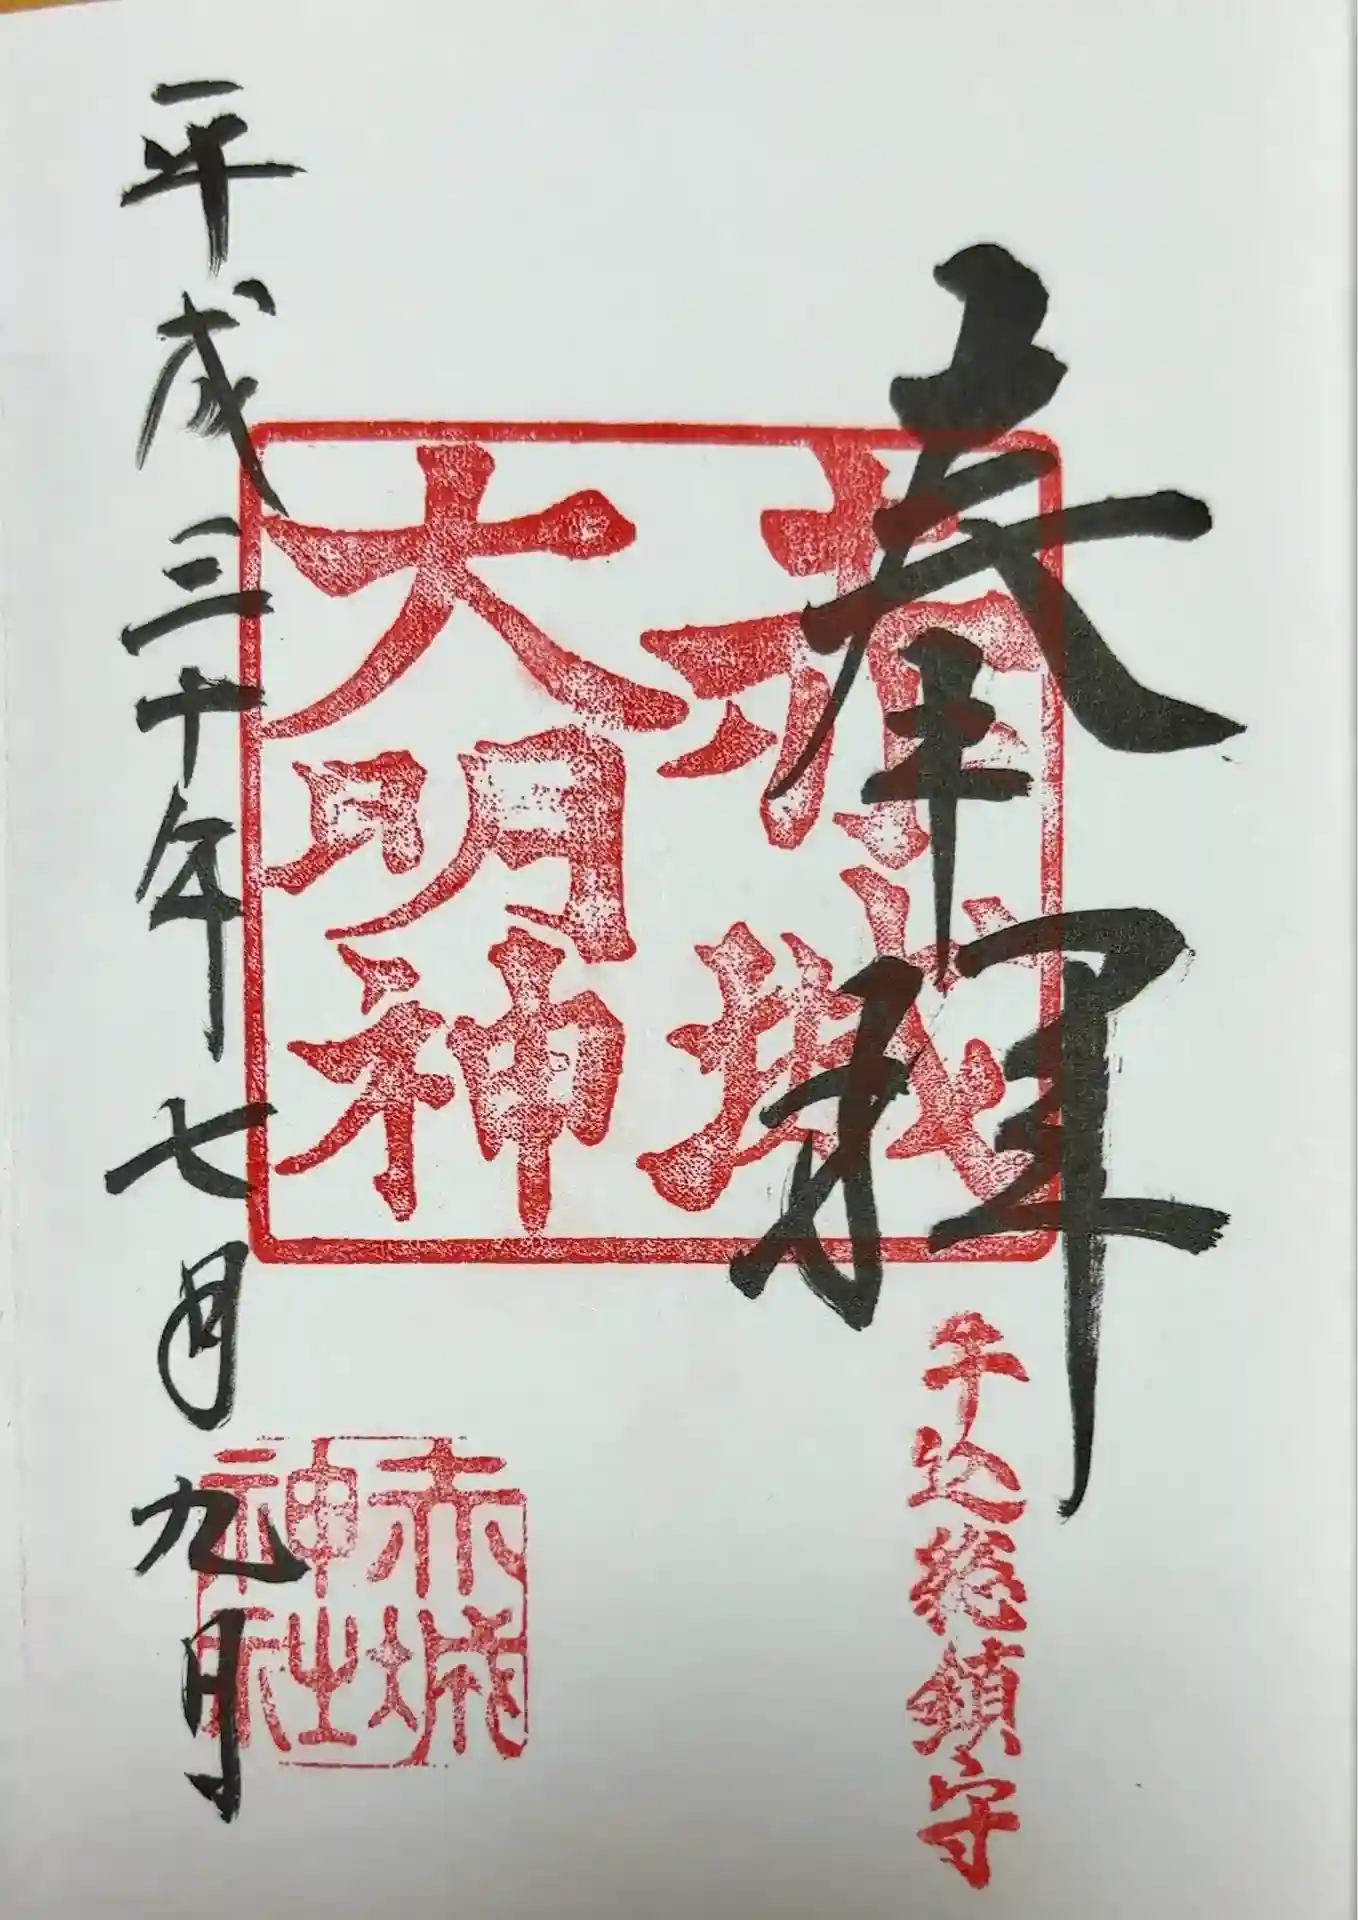 奉拝
牛込総鎮守
赤城
大明神
赤城
神社
平成三十年七月九日